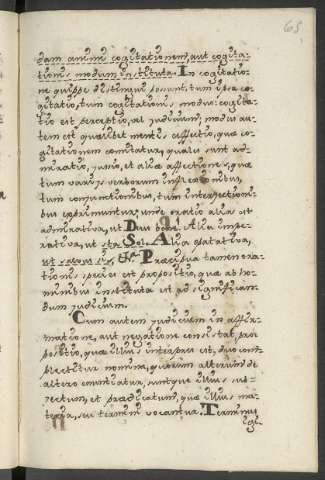 605
dam animi cogitationem, aut cogita-
tionis modum instituta. In cogitatio-
ne quippe distingui possunt, tum ipsa co-
gitatio, tum cogitationis modus: cogita-
tio est perceptio, at judicium, modus au-
tem est quaelibet mentis affectio, quae co-
gitationem comitatur, qualis sunt ad-
miratio, jussio, et aliae affectiones, quae
tum varijs verborum inflexionibus,
tum conjunctionibus, tum interjectioni-
bus exprimuntur, unde oratio alia est
admirativa, ut Deus bone! Alia impe-
rativa, ut sta Sol. Alia optativa,
ut Praecipua tamen ora-
tionis species est propositio, quae ab ho-
minibus instituta est ad significan-
dum judicium.
Cum autem judicium in affir-
matione, aut negatione consistat, pro-
positio, quae illius interpres est, duo com-
plectitur nomina, quorum alterum de
altero enuntiatur, suntque illius sub-
jectum, et praedicatum, quae illius ma-
teria, seu termini vocantur. Terminus